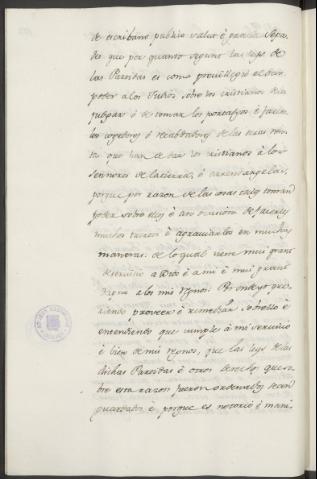 de escribano publico valer è gracia. Sepa-
des que por quanto segund las leys de
las Partidas es como previllegio el dar
poder a los Judios sobre los cristianos de
juzgar ó de tomar los portadgos, è facer
los cogedores ó recabdadores de las otras rentas
que han de dar los cristianos à los
señores de la tierra, ó arrendargelas,
porque por razon de las cosas tales toman
poder sobre ellos è dan ocasion de facerles
muchos tuertos è agraviarlos en muchas
maneras. de lo qual viene mui grant
deservicio à Dios è à mi è mui grant
daño a los mis regnos. Et yo que-
riendo proveer è remediar sobrello è
entendiendo que cumple à mi servicio
è bien de mis regnos, que las leys de las
dichas Partidas è otros derechos que so-
bre esta razon fueron ordenados sean
guardados è porque es notorio è mani-